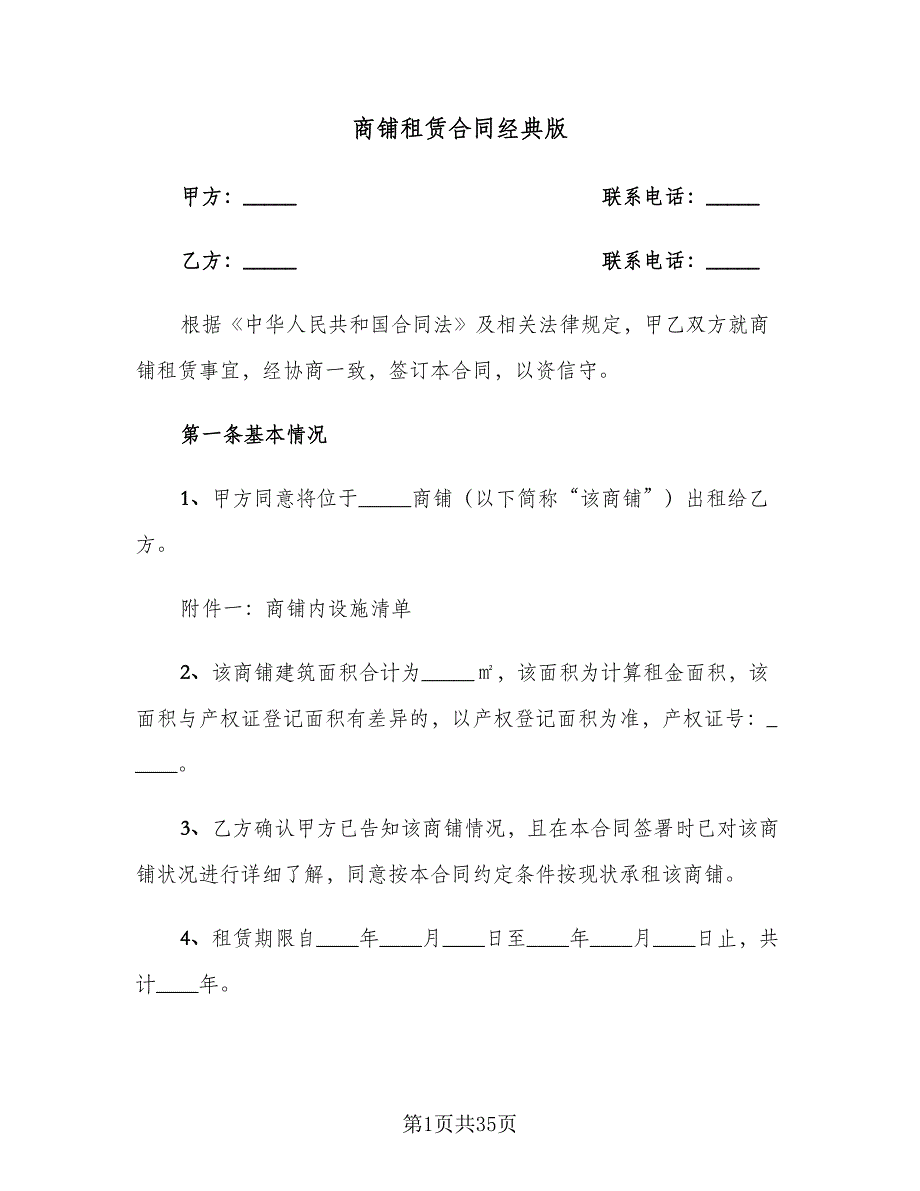 商铺租赁合同经典版
甲方：_____ 联系电话：_____
乙方：_____ 联系电话：_____
根据《中华人民共和国合同法》及相关法律规定，甲乙双方就商
铺租赁事宜，经协商一致，签订本合同，以资信守。
第一条基本情况
1、甲方同意将位于_____商铺（以下简称“该商铺”）出租给乙
方。
附件一：商铺内设施清单
2、该商铺建筑面积合计为_____㎡，该面积为计算租金面积，该
面积与产权证登记面积有差异的，以产权登记面积为准，产权证号：_
____。
3、乙方确认甲方已告知该商铺情况，且在本合同签署时已对该商
铺状况进行详细了解，同意按本合同约定条件按现状承租该商铺。
4、租赁期限自____年____月____日至____年____月____日止，共
计____年。
第1页共35页